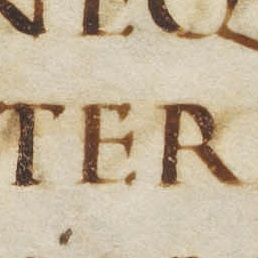 NEQ
TER